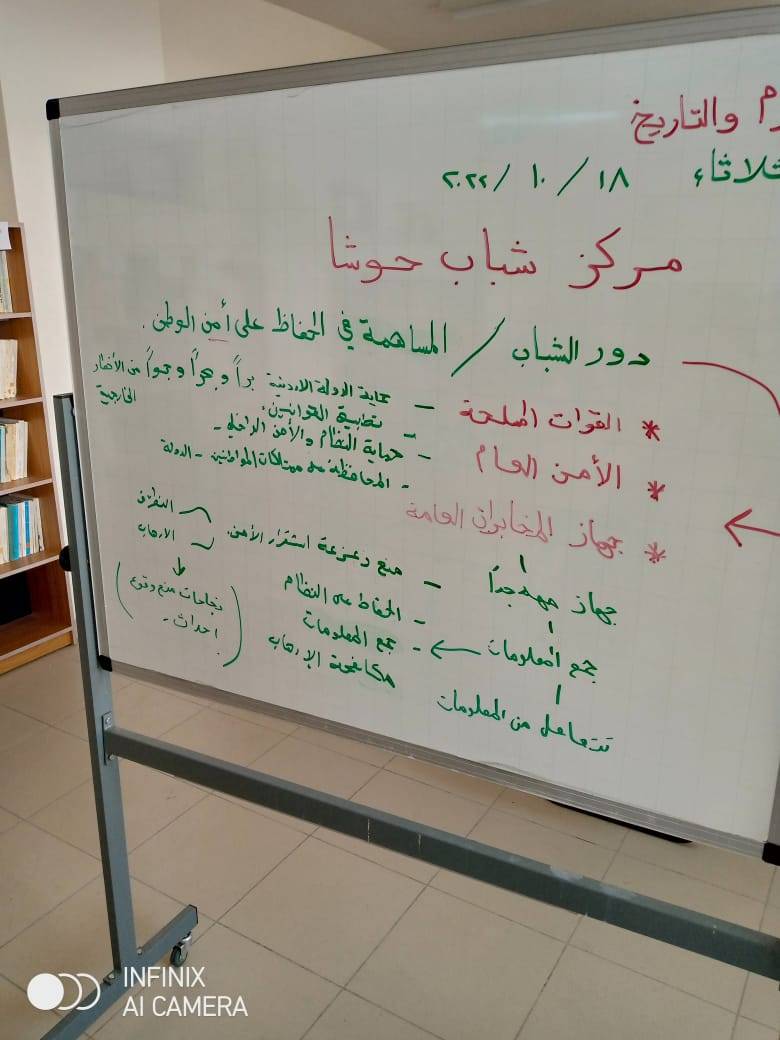 م والتاريخ
ثلاثاء ١٨ / ١٠ / ٢٠٢٢
مركز شباب حوشا
دور الشباب / المساهمة في الحفاظ على أمن الوطن .
* القوات المسلحة - حماية الدولة الاردنية براً وبحراً وجواً من الأخطار الخارجية
* الأمن العام - تطبيق القوانين
- حماية النظام والأمن الداخلي -
- المحافظة على ممتلكات المواطنين - الدولة
* جهاز المخابرات العامة
جهاز مهم جداً - منع زعزعة استقرار الأمن
التطرف
الارهاب
نجاحات منع وقوع احداث -
- الحفاظ على النظام
جمع المعلومات - جمع المعلومات
مكافحة الإرهاب
تتعامل من المعلومات
INFINIX
AI CAMERA